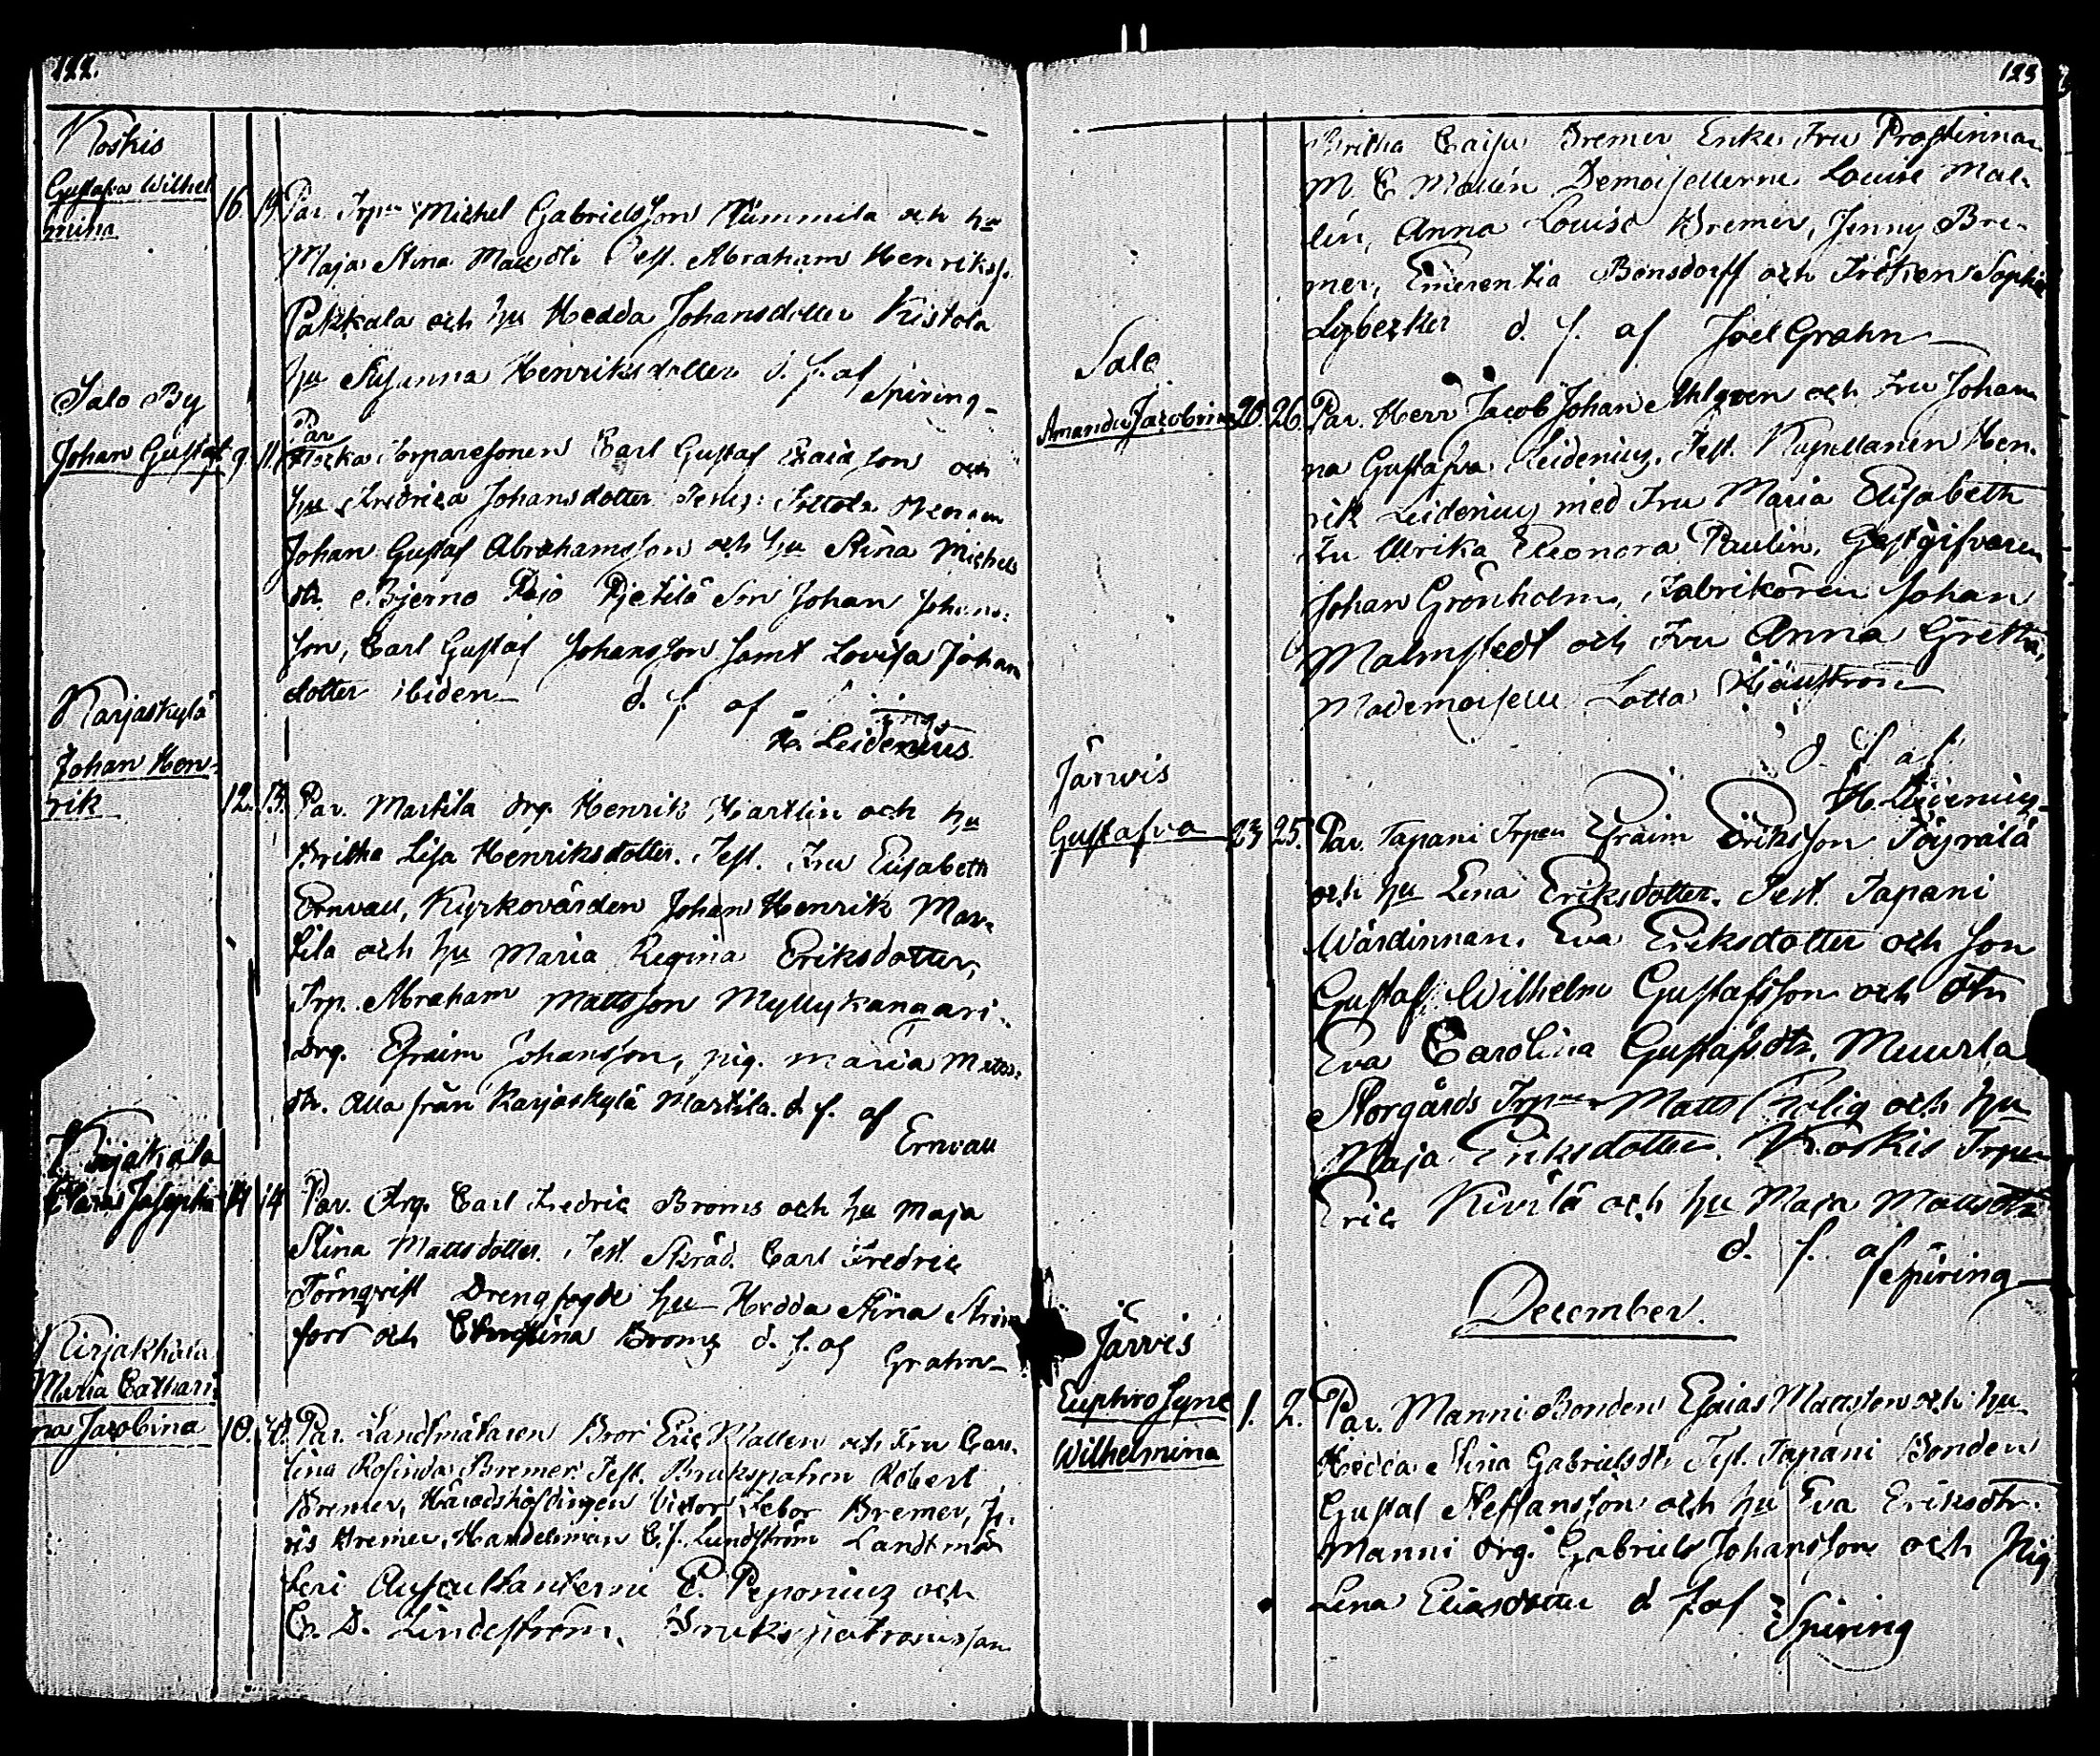 122.
Koskis
Gustafva Wilhel
mina
16. 19. Par. Trpn Michel Gabrielsson Nummila och hu
Maja Stina Mattsdtr Test. Abraham Henrikss.
Pakkala och hu Hedda Johansdotter Kistola
hu Susanna Henriksdotter d. f. af
Spiring
Salo By
Johan Gustaf 9. 11. Par
Torparesonen Carl Gustaf Esaiasson och
hu Fredrica Johansdotter
Johan Gustaf Abrahamsson och hu Stina Michels
dtr. Bjerno Pajo Pjetilä Son Johan Johans-
son, Carl Gustaf Johansson samt Lovisa Johan
dotter ibidem d. f. af
H. Leidenius
Karjaskylä
Johan Hen-
rik 12. 13. Par. Martila drg. Henrik Martlin och hu
Britha Lisa Henriksdotter. Test. Fru Elisabeth
Ernvall, Kyrkovärden Johan Henrik Mar-
tila och hu Maria Regina Eriksdotter,
Trp. Abraham Mattsson Myllykangari.
drg. Efraim Johansson, pig. Maria Matts-
dtr. Alla från Karjaskylä Martila. d. f. af
Ernvall
Kirjakala
Clara Josephina 11 14 Par. Drg. Carl Fredric Broms och hu Maja
Stina Mattsdotter. Test. Skräd. Carl Fredric
Törnqvist Drengfogde hu Hedda Stina Ström
fors och Christina Broms d. f. af
Grahn
Kirjakkala
Maria Cathari
na Jacobina 10. 20. Par. Landtmätaren Bror Eric Mallen och Fru Caro-
lina Rosinda Bremer. Test. Brukspatron Robert
Bremer, Häradshöfdingen Victor Febor Bremer, J.
ris Bremer, Handelsman C. J. Lundström Landtmä
teri Auscultanterne E. Peponius och
C. D. Lindeström, Brukspatronessan
123
Britha Caisa Bremer Enke Fru Prostinnan
M. C. Mallén Demoisellerne Louise Mal-
lén, Anna Louise Bremer, Jenny Bre-
mer, Emerentia Bonsdorff och Fröken Sophie
Lybecker d. f. af Joel Grahn
Salo
Amanda Jacobina 20. 26. Par. Herr Jacob Johan Ahlgren och Fru Johan
na Gustafva Leidenius. Test. Kapellanen Hen-
rik Leidenius med Fru Maria Elisabeth
Fru Ulrika Eleonora Paulin, Gästgifvaren
Johan Grönholm, Fabrikören Johan
Malmstedt och Fru Anna Gretha,
Mademoiselle Lotta
d. f. af
H. Leidenius
Järwis
Gustafva 23 25. Par. Tapani Trpen Efraim Eriksson Töyrälä
och hu Lena Eriksdotter. Test. Tapani
Wärdinnan. Eva Eriksdotter och Son
Gustaf Wilhelm Gustafsson och dtr
Eva Carolina Gustafsdtr. Muurla
Storgårds Trpen Matts Rolig och hu
Maja Eriksdotter. Koskis Trpen
Eric Kivilä och hu Maja Mattsdtr
d. f. af
Spiring
December.
Järvis
Euphrosyne 1. 2. Par. Manni Bonden Esaias Mattsson och hu
Wilhelmina
Hedda Stina Gabrielsdtr. Test. Tapani Bonden
Gustaf Steffansson och hu Eva Eriksdtr.
Manni drg. Gabriel Johansson och Pig
Lena Eliasdotter d. f. af
Spiring